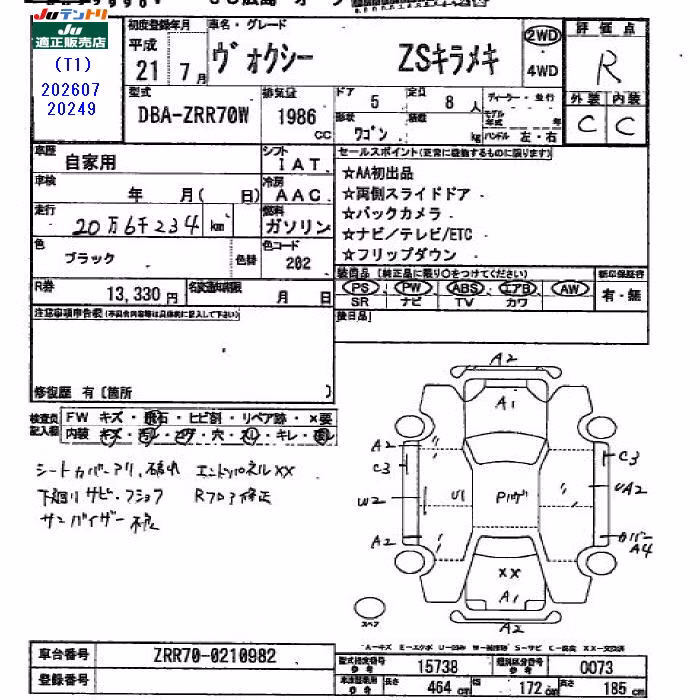 Juテントリ
Ju
適正販売店
(T1)
202607
20249
初度登録年月
平成
21年7月
車名・グレード
ヴォクシー ZSキラメキ
2WD
4WD
評価点
R
外装 内装
C C
型式
DBA-ZRR70W
排気量
1986
CC
ドア 5
定員 8人
形状 ワゴン
積載 kg
ディーラー・並行
モデル年式 年
ハンドル 左・右
車歴 自家用
シフト IAT
車検 年 月( 日)
冷房 AAC
走行 20万6千234 km
燃料 ガソリン
色 ブラック 色替
色コード 202
R券 13,330円
名変期限 月 日
セールスポイント(正常に機能するものに限ります)
☆AA初出品
☆両側スライドドア
☆バックカメラ
☆ナビ/テレビ/ETC
☆フリップダウン
装備品 (純正品に限り○をつけてください)
新車保証書
PS PW ABS エアB AW
SR ナビ TV カワ
有・無
後日品
注意事項申告欄(不具合内容等は具体的に記入して下さい)
修復歴 有〔箇所 〕
検査員記入欄
FW キズ・飛石・ヒビ割・リペア跡・×要
内装 キズ・汚レ・コゲ・穴・スレ・キレ・
シートカバーアリ、破れ エンドパネルXX
下廻りサビ・フショク Rフロア修正
サンバイザー
A2
A1
A2
C3
W2
A2
U1
Pルーフ
C3
UA2
カバー
A4
XX
A1
A2
スペア
A-キズ E-エクボ U-凹み W-補修跡 S-サビ C-腐食 XX-交換済
車台番号 ZRR70-0210982
登録番号
型式指定番号 参考 15738
類別区分番号 参考 0073
参考 長さ 464cm 幅 172cm 高さ 185cm